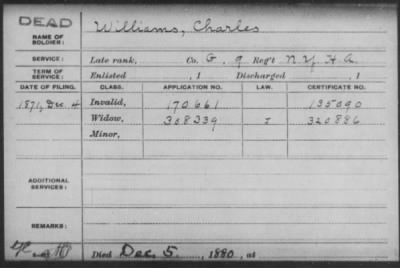 DEAD
NAME OF SOLDIER: Williams, Charles
SERVICE: Late rank, Co. G, 9 Reg't N.Y. H.A.
TERM OF SERVICE: Enlisted , 1 Discharged , 1
DATE OF FILING. CLASS. APPLICATION NO. LAW. CERTIFICATE NO.
1871, Dec. 4 Invalid, 170661 135090
Widow, 308239 320886
Minor,
ADDITIONAL SERVICES:
REMARKS:
Died Dec. 5, 1880, at